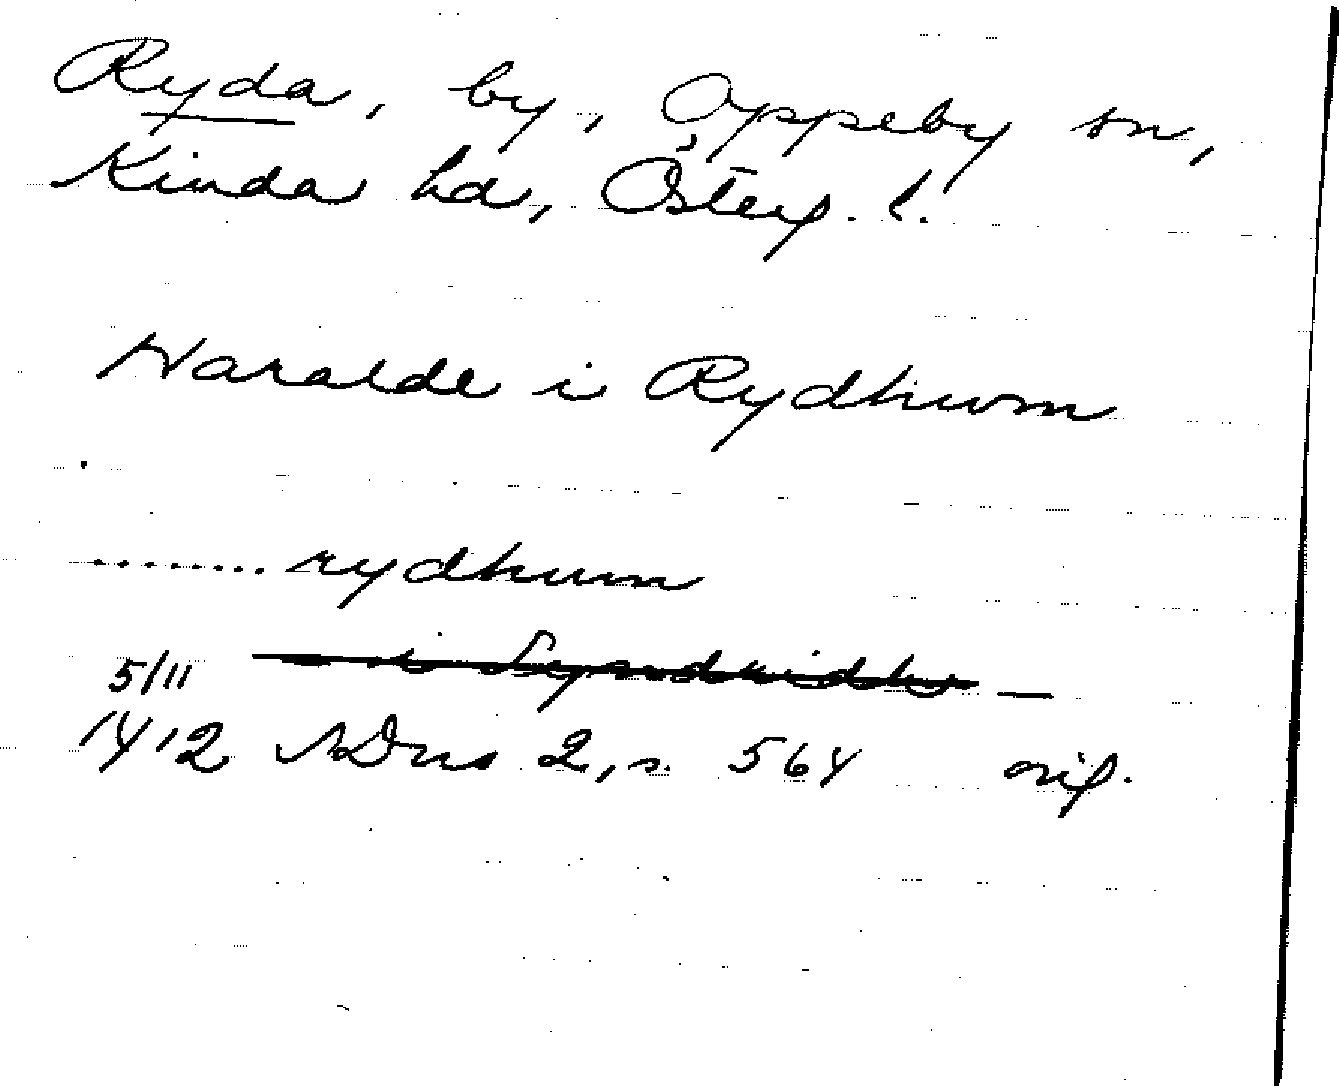 Ryda, by, Oppeby sn,
Kinda hd, Österg. l.
Haralde i Rydhum
........ rydhum
5/11
1412 SDns 2, s. 564 orig.